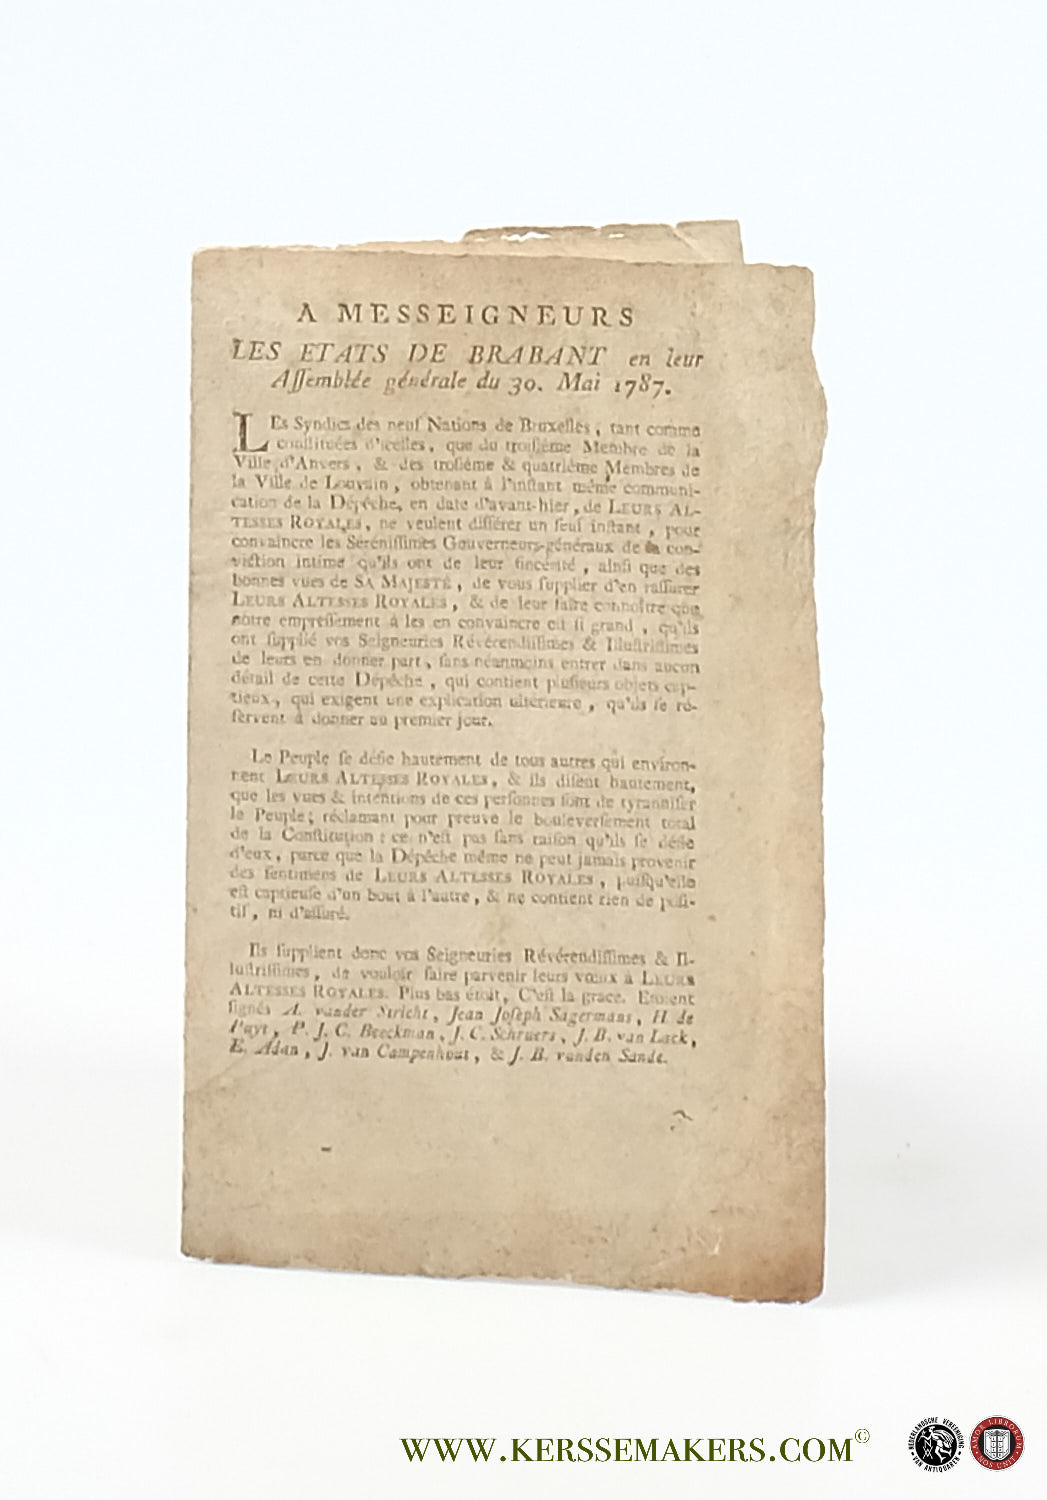 A MESSEIGNEURS
LES ETATS DE BRABANT en leur
Aſſemblée générale du 30. Mai 1787.
LEs Syndics des neuf Nations de Bruxelles, tant comme
conſtituées d'icelles, que du troiſiéme Membre de la
Ville d'Anvers, & des troſiéme & quatriéme Membres de
la Ville de Louvain, obtenant à l'inſtant même communi-
cation de la Dépêche, en date d'avant-hier, de LEURS AL-
TESSES ROYALES, ne veulent différer un ſeul inſtant, pour
convaincre les Séréniſſimes Gouverneurs-généraux de la con-
viction intime qu'ils ont de leur ſincérité, ainſi que des
bonnes vues de SA MAJESTÉ, de vous ſupplier d'en raſſurer
LEURS ALTESSES ROYALES, & de leur faire connoître que
nôtre empreſſement à les en convaincre eſt ſi grand, qu'ils
ont ſupplié vos Seigneuries Révérendiſſimes & Illuſtriſſimes
de leurs en donner part, ſans néanmoins entrer dans aucun
détail de cette Dépêche, qui contient pluſieurs objets cap-
tieux, qui exigent une explication ultérieure, qu'ils ſe ré-
ſervent à donner au premier jour.
Le Peuple ſe défie hautement de tous autres qui environ-
nent LEURS ALTESSES ROYALES, & ils diſent hautement,
que les vues & intentions de ces perſonnes ſont de tyranniſer
le Peuple; réclamant pour preuve le bouleverſement total
de la Conſtitution: ce n'eſt pas ſans raiſon qu'ils ſe défie
d'eux, parce que la Dépêche même ne peut jamais provenir
des ſentimens de LEURS ALTESSES ROYALES, puiſqu'elle
eſt captieuſe d'un bout à l'autre, & ne contient rien de poſi-
tif, ni d'aſſuré.
Ils ſupplient donc vos Seigneuries Révérendiſſimes & Il-
luſtriſſimes, de vouloir faire parvenir leurs vœux à LEURS
ALTESSES ROYALES. Plus bas étoit, C'eſt la grace. Etoient
ſignés A. vander Stricht, Jean Joſeph Sagermans, H. de
Puyt, P. J. C. Beeckman, J. C. Schruers, J. B. van Lack,
E. Adan, J. van Campenhout, & J. B. vanden Sande.
WWW.KERSSEMAKERS.COM©
NEDERLANDSCHE VEREENIGING
VAN ANTIQUAREN
AMOR LIBRORUM
NOS UNIT